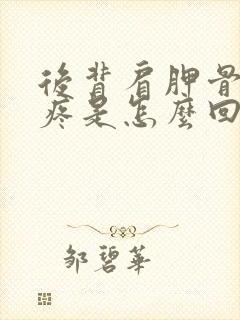 後背肩胛骨
疼是怎麼回
鄒碧華